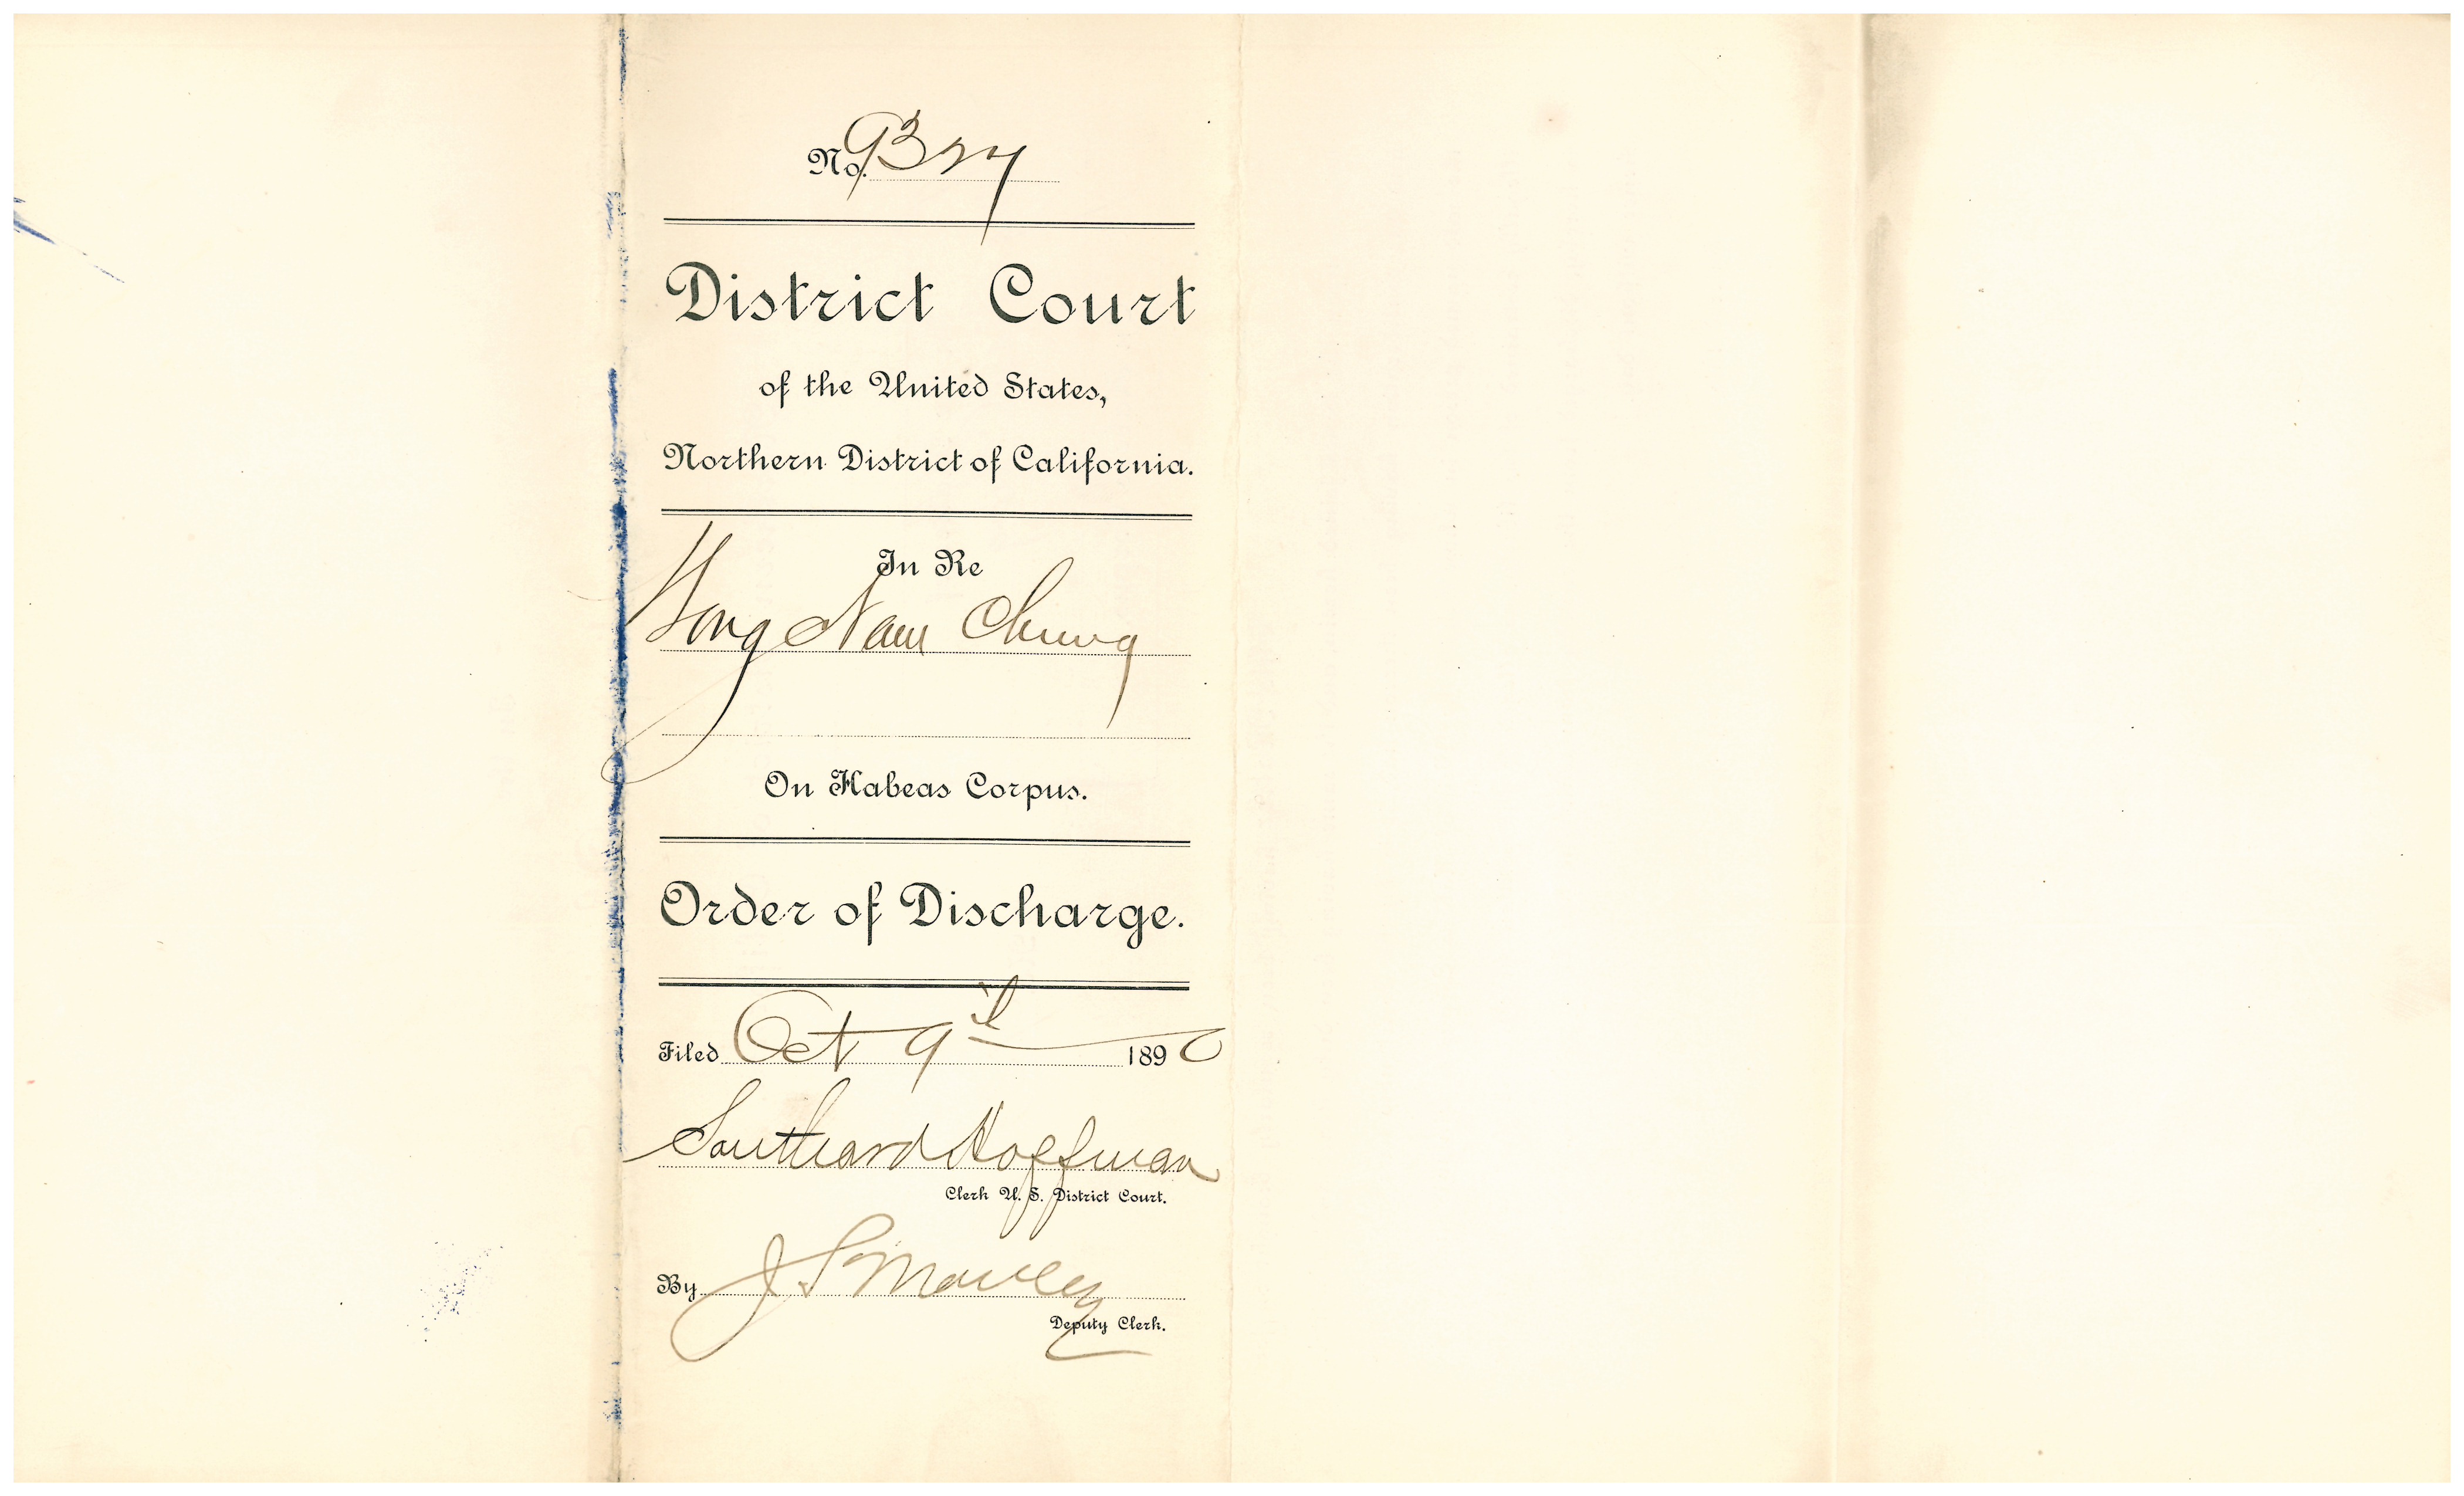 No. 9327
District Court
of the United States,
Northern District of California.
In Re
Wong Nam Chung
On Habeas Corpus.
Order of Discharge.
Filed Oct 9th 1890
Southard Hoffman
Clerk U. S. District Court.
By J S Manley
Deputy Clerk.